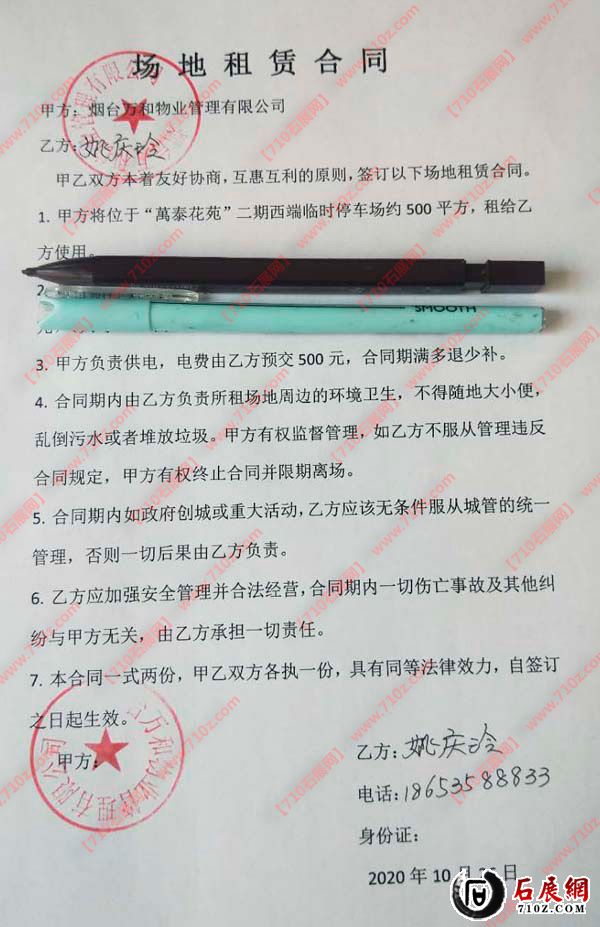 场地租赁合同
甲方：烟台万和物业管理有限公司
乙方：姚庆玲
甲乙双方本着友好协商，互惠互利的原则，签订以下场地租赁合同。
1. 甲方将位于“萬泰花苑”二期西端临时停车场约 500 平方，租给乙
方使用。
2.
SMOOTH
3. 甲方负责供电，电费由乙方预交 500 元，合同期满多退少补。
4. 合同期内由乙方负责所租场地周边的环境卫生，不得随地大小便，
乱倒污水或者堆放垃圾。甲方有权监督管理，如乙方不服从管理违反
合同规定，甲方有权终止合同并限期离场。
5. 合同期内如政府创城或重大活动，乙方应该无条件服从城管的统一
管理，否则一切后果由乙方负责。
6. 乙方应加强安全管理并合法经营，合同期内一切伤亡事故及其他纠
纷与甲方无关，由乙方承担一切责任。
7. 本合同一式两份，甲乙双方各执一份，具有同等法律效力，自签订
之日起生效。
甲方：
乙方：姚庆玲
电话：18653588833
身份证：
2020 年 10 月 日
石展網
710z.com
【710石展网】www.710z.com